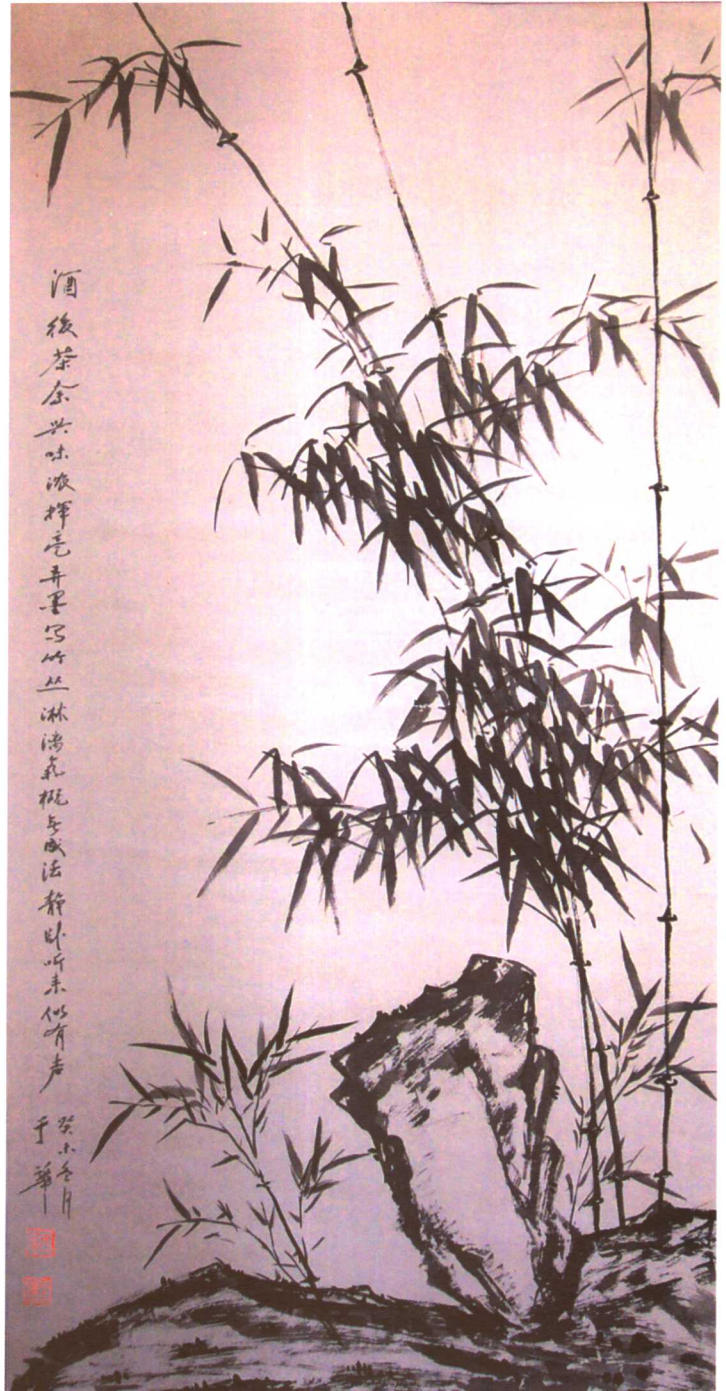 酒後茶余兴味浓挥毫弄墨写竹丛淋漓气概无成法静卧听来似有声
癸未冬月
于華